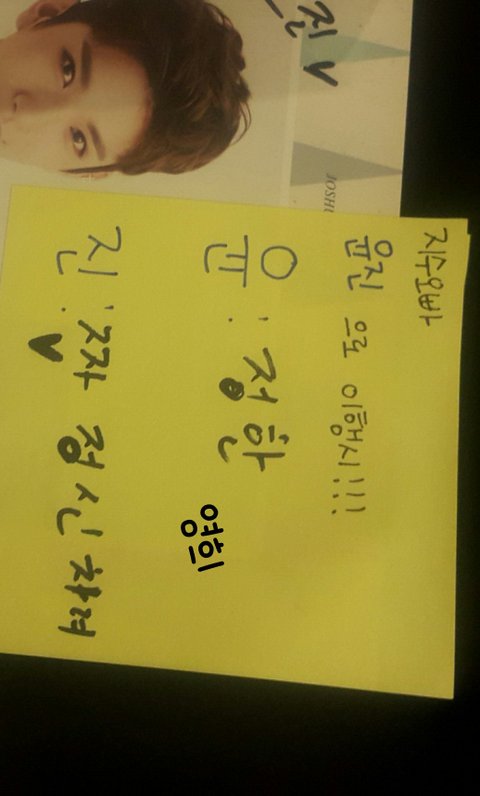 진
JOSHU
지수오빠
윤진 으로 이행시!!!
윤 : 정한
영희
진 : 짜 정신 차려